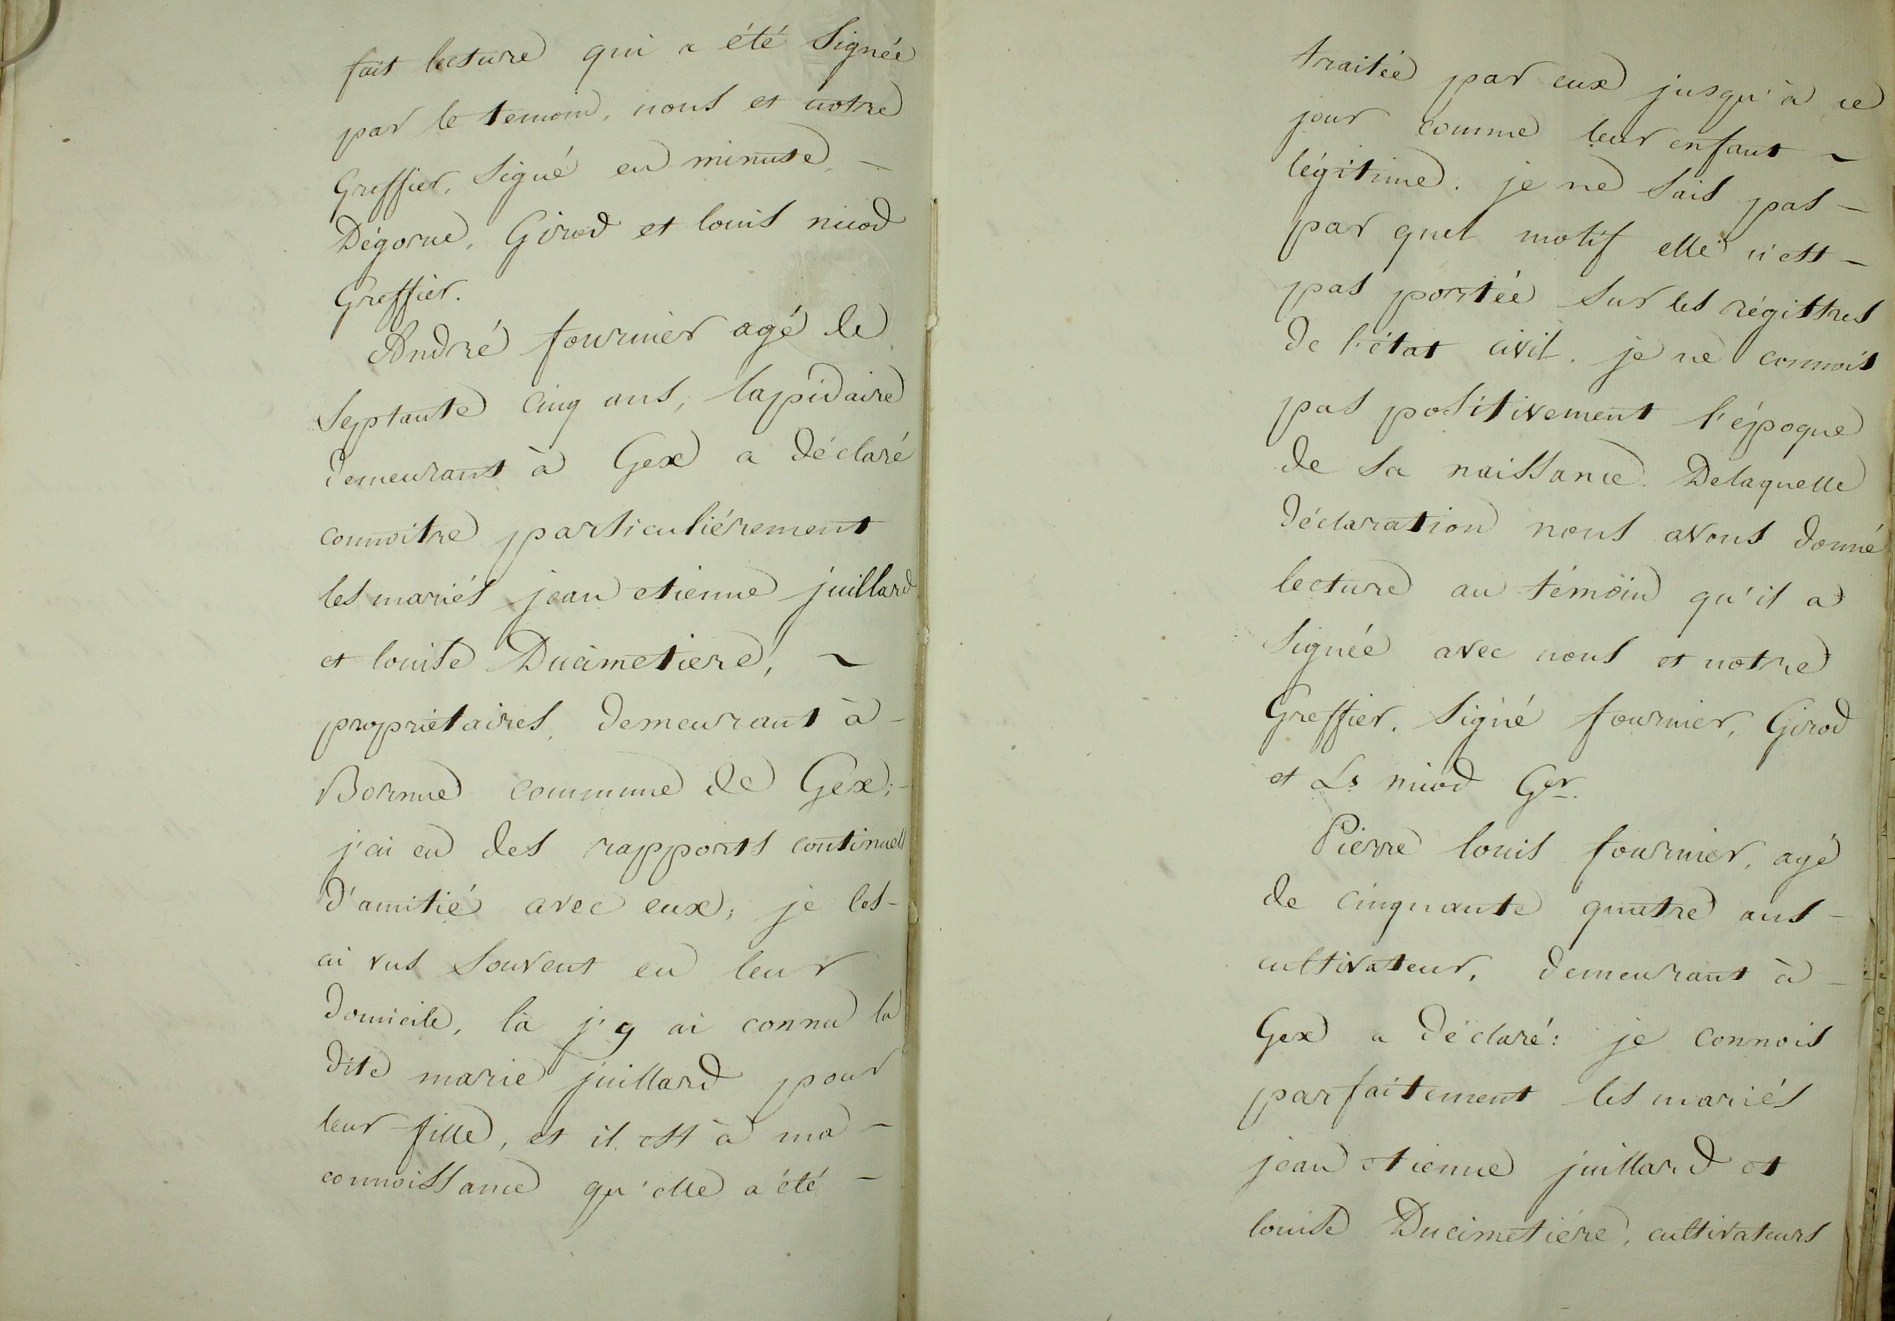 fait lecture qui a été Signée
par le temoin, nous et notre
Greffier. Signé en minute –
Dégorne, Girod et louis nicod
Greffier.
André fournier agé de
Septante cinq ans, lapidaire
demeurant à Gex a déclaré
connoitre particuliérement
les mariés jean etienne juillard
et louise Ducimetiere, ~
propriétaires, demeurant à –
commune de Gex; –
j'ai eu des rapports continuels
d'amitié avec eux, je les –
ai vus Souvent en leur
domicile, là j'y ai connu la
dite marie juillard pour
leur fille, et il est à ma –
connoissance qu'elle a été –
traitée par eux jusqu'à ce
jour comme leur enfant ~
légitime. je ne Sais pas –
par quel motif elle n'est –
pas portée Sur les régistres
de l'état civil. je ne connois
pas positivement l'époque
de Sa naissance. Delaquelle
déclaration nous avons donné
lecture au témoin qu'il a
Signée avec nous et notre
Greffier. Signé fournier, Girod
et Ls nicod Ger.
Pierre louis fournier, agé
de cinquante quatre ans –
cultivateur, demeurant à –
Gex a déclaré: je connois
parfaitement les mariés
jean etienne juillard et
louise Ducimetiére, cultivateurs